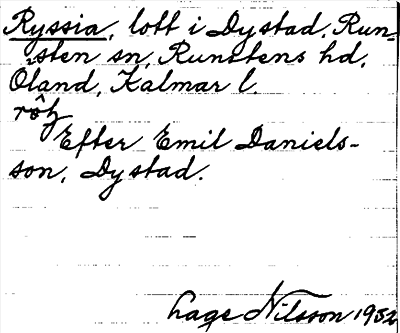 Ryssia, lott i Dystad, Run-
sten sn, Runstens hd,
Öland, Kalmar l.
Efter Emil Daniels-
son, Dystad.
Lage Nilsson 1932